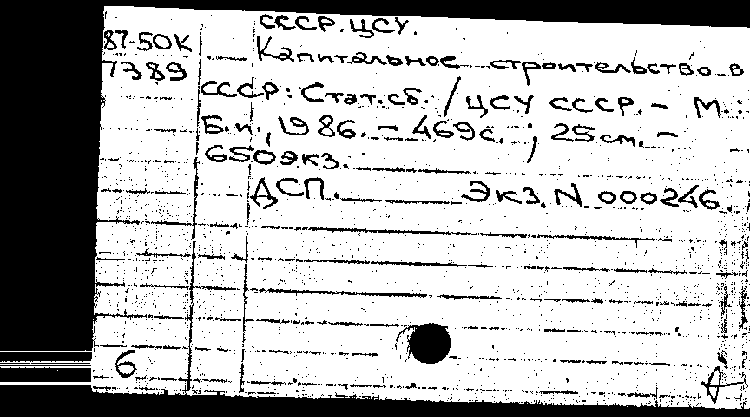 СССР. ЦСУ.
87-50К
7389
Капитальное строительство в
СССР: Стат. сб. / ЦСУ СССР. – М.:
Б.и., 1986. – 469с. ; 25 см. –
650экз.
ДСП. Экз. N 000246.
6